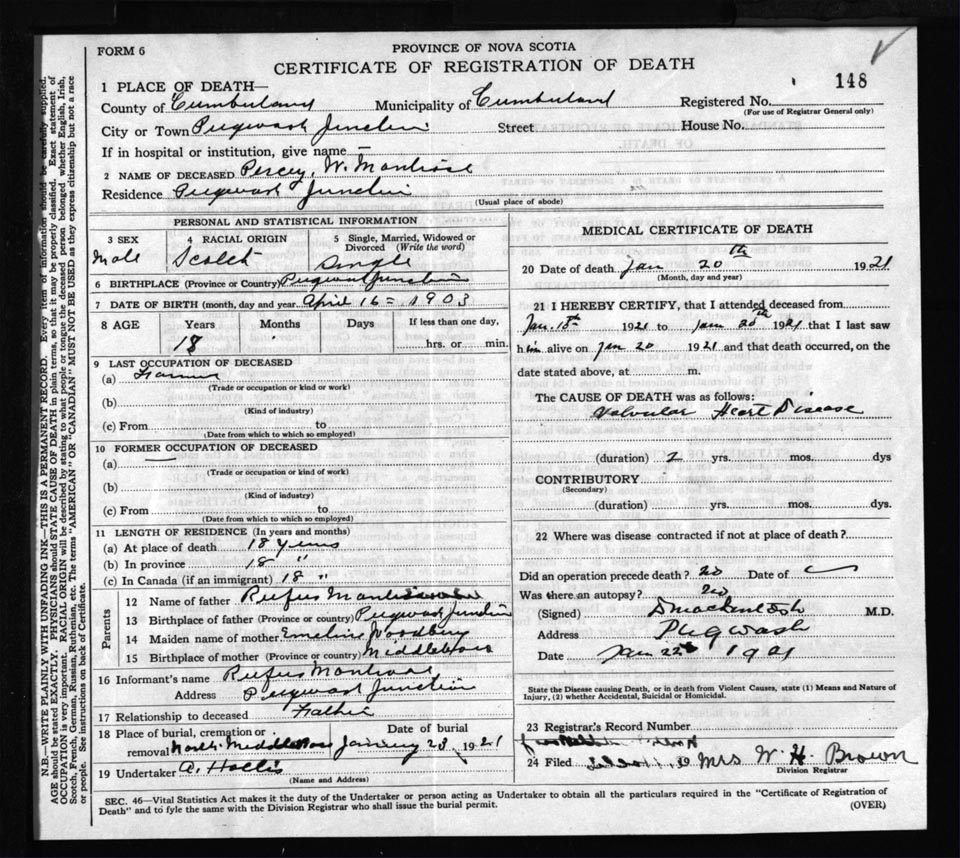 FORM 6
PROVINCE OF NOVA SCOTIA
CERTIFICATE OF REGISTRATION OF DEATH
148
1 PLACE OF DEATH—
County of Cumberland Municipality of Cumberland Registered No.
(For use of Registrar General only)
City or Town Pugwash Junction Street House No.
If in hospital or institution, give name —
2 NAME OF DECEASED Percy W. Montrose
Residence Pugwash Junction
(Usual place of abode)
PERSONAL AND STATISTICAL INFORMATION
3 SEX 4 RACIAL ORIGIN 5 Single, Married, Widowed or Divorced (Write the word)
Male Scotch Single
6 BIRTHPLACE (Province or Country) Pugwash Junction
7 DATE OF BIRTH (month, day and year) April 16 = 1903
8 AGE Years Months Days If less than one day,
18 hrs. or min.
9 LAST OCCUPATION OF DECEASED
(a) Farmer
(Trade or occupation or kind or work)
(b)
(Kind of industry)
(c) From to
(Date from which to which so employed)
10 FORMER OCCUPATION OF DECEASED
(a) —
(Trade or occupation or kind of work)
(b)
(Kind of industry)
(c) From to
(Date from which to which so employed)
11 LENGTH OF RESIDENCE (In years and months)
(a) At place of death 18 years
(b) In province 18 "
(c) In Canada (if an immigrant) 18 "
Parents
12 Name of father Rufus Montrose
13 Birthplace of father (Province or country) Pugwash Junction
14 Maiden name of mother Emeline Woodbury
15 Birthplace of mother (Province or country) Middleboro
16 Informant's name Rufus Montrose
Address Pugwash Junction
17 Relationship to deceased Father
18 Place of burial, cremation or removal Date of burial
North Middleboro January 23, 1921
19 Undertaker A. Hollis
(Name and Address)
MEDICAL CERTIFICATE OF DEATH
20 Date of death Jan 20th 1921
(Month, day and year)
21 I HEREBY CERTIFY, that I attended deceased from
Jan. 15th 1921 to Jan 20th 1921 that I last saw
him alive on Jan 20 1921 and that death occurred, on the
date stated above, at m.
The CAUSE OF DEATH was as follows:
Valvular Heart Disease
(duration) 2 yrs. mos. dys
CONTRIBUTORY
(Secondary)
(duration) yrs. mos. dys.
22 Where was disease contracted if not at place of death?
Did an operation precede death? no Date of
Was there an autopsy? no
(Signed) D Mackintosh M.D.
Address Pugwash
Date Jan 22d 1921
State the Disease causing Death, or in death from Violent Causes, state (1) Means and Nature of
Injury, (2) whether Accidental, Suicidal or Homicidal.
23 Registrar's Record Number
24 Filed 19 Mrs W. H. Brown
Division Registrar
SEC. 46—Vital Statistics Act makes it the duty of the Undertaker or person acting as Undertaker to obtain all the particulars required in the "Certificate of Registration of
Death" and to fyle the same with the Division Registrar who shall issue the burial permit.
(OVER)
N.B.—WRITE PLAINLY WITH UNFADING INK—THIS IS A PERMANENT RECORD. Every item of information should be carefully supplied.
AGE should be stated EXACTLY. PHYSICIANS should STATE CAUSE OF DEATH in plain terms, so that it may be properly classified. Exact statement of
OCCUPATION is very important. RACIAL ORIGIN will be described by stating to what people or tongue the deceased person belonged whether English, Irish,
Scotch, French, German, Russian, Ruthenian, etc. The terms "AMERICAN" OR "CANADIAN" MUST NOT BE USED as they express citizenship but not a race
or people. See instructions on back of Certificate.